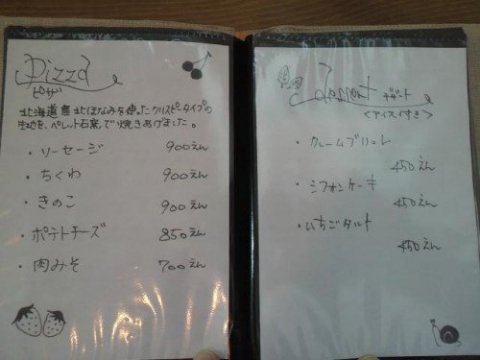 Pizza
ピザ
北海道産北ほなみを使ったクリスピータイプの
生地を、ペレット石窯で焼きあげました。
・ソーセージ 900えん
・ちくわ 900えん
・きのこ 900えん
・ポテトチーズ 850えん
・肉みそ 700えん
dessert デザート
<アイス付き>
・クレームブリュレ
450えん
・シフォンケーキ
450えん
・いちごタルト
450えん